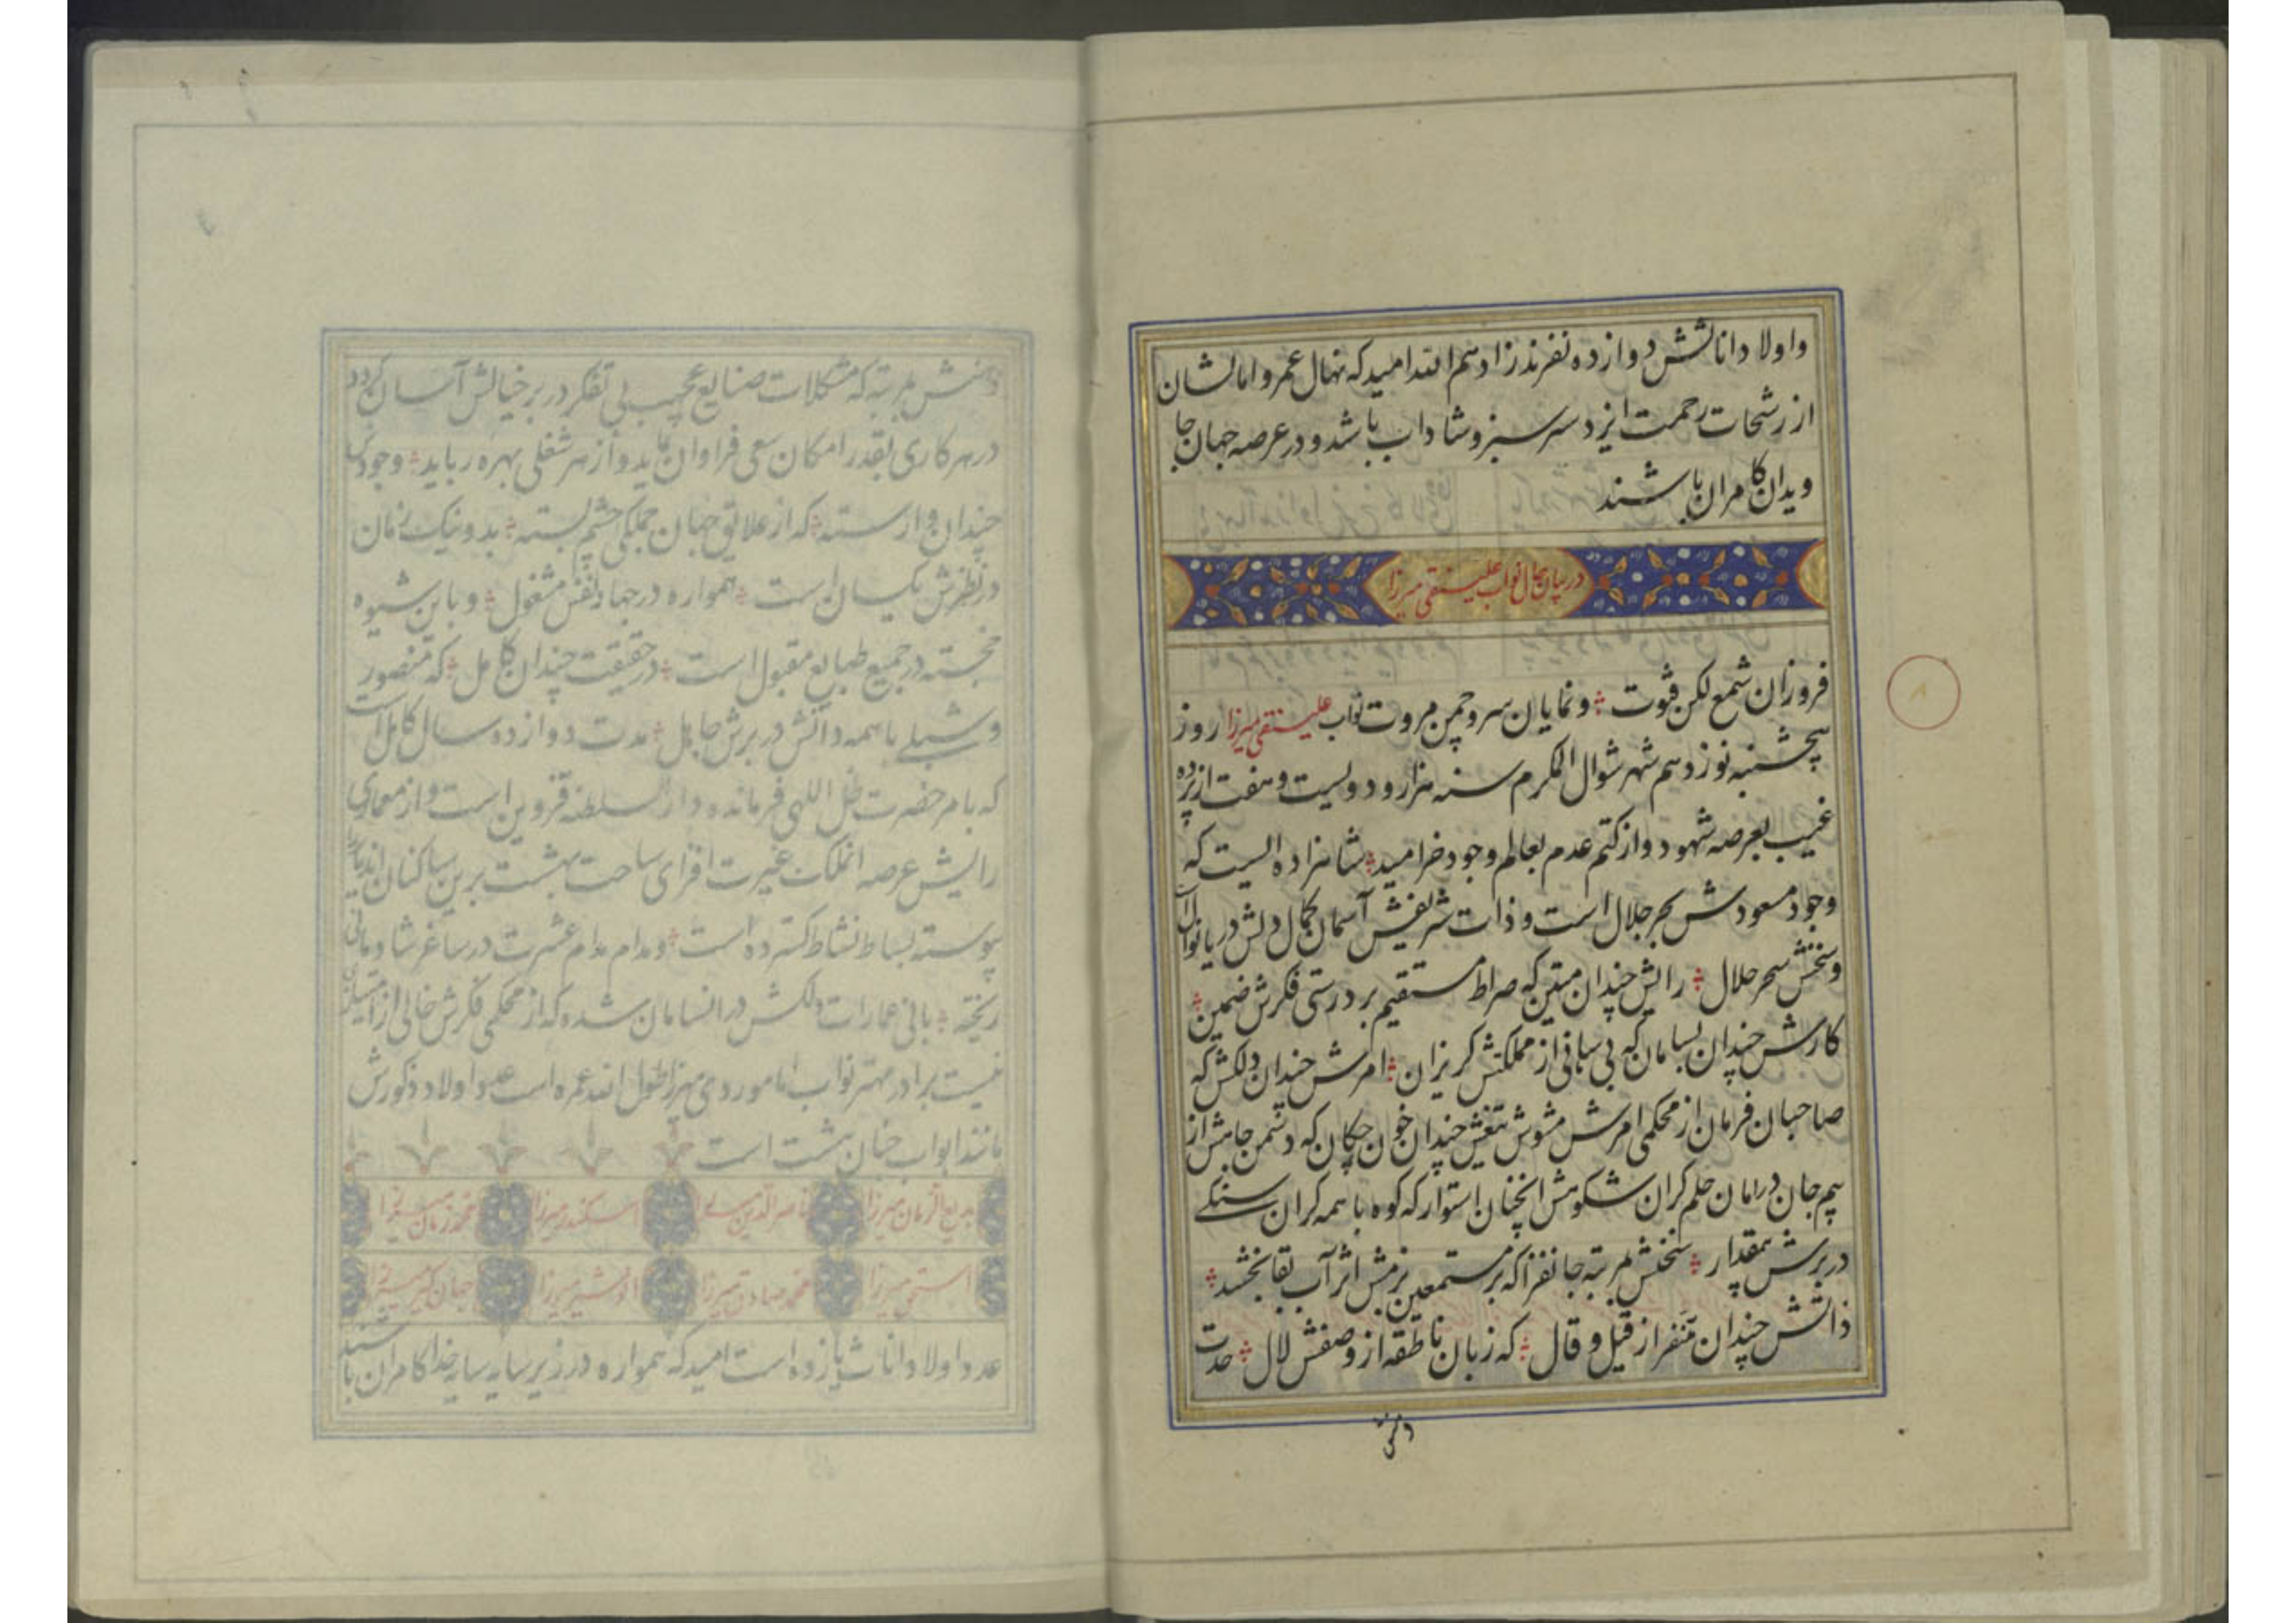 و اولاد اناثش دوازده نفرند زادهم الله امید که نهال عمر و امالشان
از رشحات رحمت ایزد سرسبز و شاداب باشد و در عرصه جهان جا
ویدان کامران باشند
در بیان حال نواب علینقی میرزا
فروزان شمع لکن فتوت و نمایان سرو چمن مروت نواب علینقی میرزا روز
پنجشنبه نوزدهم شهر شوال المکرم سنه هزار و دویست و هفت از پرده
غیب بعرصه شهود و از کتم عدم بعالم وجود خرامید شاهزاده ایست که
وجود مسعودش بحر جلال است و ذات شریفش آسمان کمال دلش دریا نوال
و سخنش سحر حلال رایش چندان متین که صراط مستقیم بر درستی فکرش ضمین
کارش چندان بسامان که بی سامانی از مملکتش گریزان امرش چندان دلکش که
صاحبان فرمان از محکمی امرش مشوش تیغش چندان خون چکان که دشمن جاهش از
بیم جان در امان حلم گران شکوهش انچنان استوار که کوه با همه گران سنگی
در برش بیمقدار سخنش بمرتبه جانفزا که بر مستمعین بزمش اثر آب بقا بخشد
ذاتش چندان متنفر از قیل و قال که زبان ناطقه از وصفش لال حدت
ذهنش
ذهنش بمرتبه که مشکلات صنایع عجیب بی تفکر در بر خیالش آسان گردد
در هر کاری بقدر امکان سعی فراوان نماید و از هر شغلی بهره رباید وجودش
چندان وارسته که از علایق جهان جملگی چشم بسته بد و نیک زمان
در نظرش یکسان است همواره در جهاد نفس مشغول و باین شیوه
خجسته در جمیع طبایع مقبول است در حقیقت چندان کامل که منصور
و شبلی با همه دانش در برش جاهل مدت دوازده سال کامل است
که بامر حضرت ظل اللهی فرمانده دار السلطنه قزوین است و از معماری
رایش عرصه انملکت غیرت افزای ساحت بهشت برین ساکنان اندیار
پیوسته بساط نشاط گسترده است و مدام مدام عشرت در ساغر شادمانی
ریخته بانی عمارات دلکش در انسامان شده که از محکمی فکرش خالی از امتیاز
نیست برادر مهتر نواب امام وردی میرزا طول الله عمره است عدد اولاد ذکورش
مانند ابواب جنان هشت است
بدیع الزمان میرزا ناصر الدین میرزا اسکندر میرزا محمد زمان میرزا
محمد صادق میرزا انوشیر میرزا جهانگیر میرزا
عدد اولاد اناث یازده است امید که همواره در زیر سایه سایه خدا کامران باشند